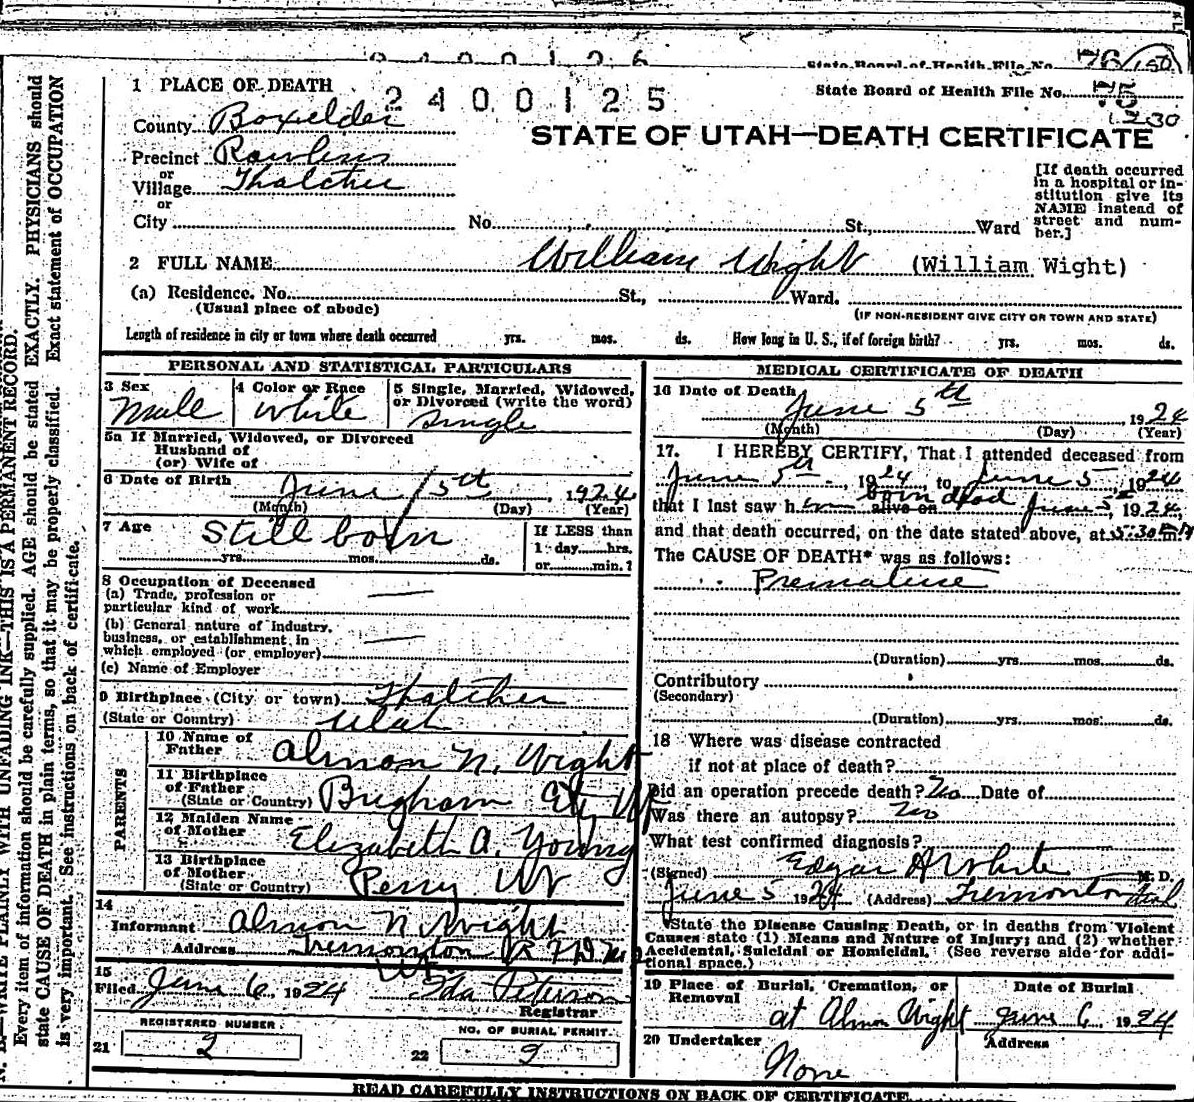 2400126
State Board of Health File No. 76
1 PLACE OF DEATH
2400125
State Board of Health File No. 75
1230
County Boxelder
STATE OF UTAH—DEATH CERTIFICATE
Precinct Rawlins
or
Village Thatcher
or
City No. St., Ward
[If death occurred
in a hospital or in-
stitution give its
NAME instead of
street and num-
ber.]
2 FULL NAME William Wight (William Wight)
(a) Residence. No. St., Ward.
(Usual place of abode)
(IF NON-RESIDENT GIVE CITY OR TOWN AND STATE)
Length of residence in city or town where death occurred yrs. mos. ds. How long in U. S., if of foreign birth? yrs. mos. ds.
PERSONAL AND STATISTICAL PARTICULARS
3 Sex
Male
4 Color or Race
White
5 Single, Married, Widowed,
or Divorced (write the word)
Single
5a If Married, Widowed, or Divorced
Husband of
(or) Wife of
6 Date of Birth June 5th, 1924
(Month) (Day) (Year)
7 Age Still born
yrs. mos. ds.
If LESS than
1 day hrs.
or min.?
8 Occupation of Deceased
(a) Trade, profession or
particular kind of work
(b) General nature of industry,
business, or establishment in
which employed (or employer)
(c) Name of Employer
9 Birthplace (City or town) Thatcher
(State or Country) Utah
PARENTS
10 Name of
Father Almon N. Wight
11 Birthplace
of Father
(State or Country) Brigham City Ut
12 Maiden Name
of Mother Elizabeth A. Young
13 Birthplace
of Mother
(State or Country) Perry Ut
14
Informant Almon N Wight
Address Tremonton
15
Filed June 6, 1924 Ida Peterson
Registrar
REGISTERED NUMBER
21 2
NO. OF BURIAL PERMIT
22 2
MEDICAL CERTIFICATE OF DEATH
16 Date of Death
June 5th, 1924
(Month) (Day) (Year)
17. I HEREBY CERTIFY, That I attended deceased from
June 5th, 1924, to June 5, 1924
that I last saw h alive on born dead June 5, 1924,
and that death occurred, on the date stated above, at 5:30 P.M.
The CAUSE OF DEATH* was as follows:
Premature
(Duration) yrs. mos. ds.
Contributory
(Secondary)
(Duration) yrs. mos. ds.
18 Where was disease contracted
if not at place of death?
Did an operation precede death? No Date of
Was there an autopsy? No
What test confirmed diagnosis?
(Signed) Edgar A White M. D.
June 5 1924 (Address) Tremonton Utah
*State the Disease Causing Death, or in deaths from Violent
Causes state (1) Means and Nature of Injury; and (2) whether
Accidental, Suicidal or Homicidal. (See reverse side for addi-
tional space.)
19 Place of Burial, Cremation, or
Removal
at Almon Wight
Date of Burial
June 6 1924
20 Undertaker
None
Address
READ CAREFULLY INSTRUCTIONS ON BACK OF CERTIFICATE
N. B.—WRITE PLAINLY WITH UNFADING INK—THIS IS A PERMANENT RECORD.
Every item of information should be carefully supplied. AGE should be stated EXACTLY. PHYSICIANS should
state CAUSE OF DEATH in plain terms, so that it may be properly classified. Exact statement of OCCUPATION
is very important. See instructions on back of certificate.